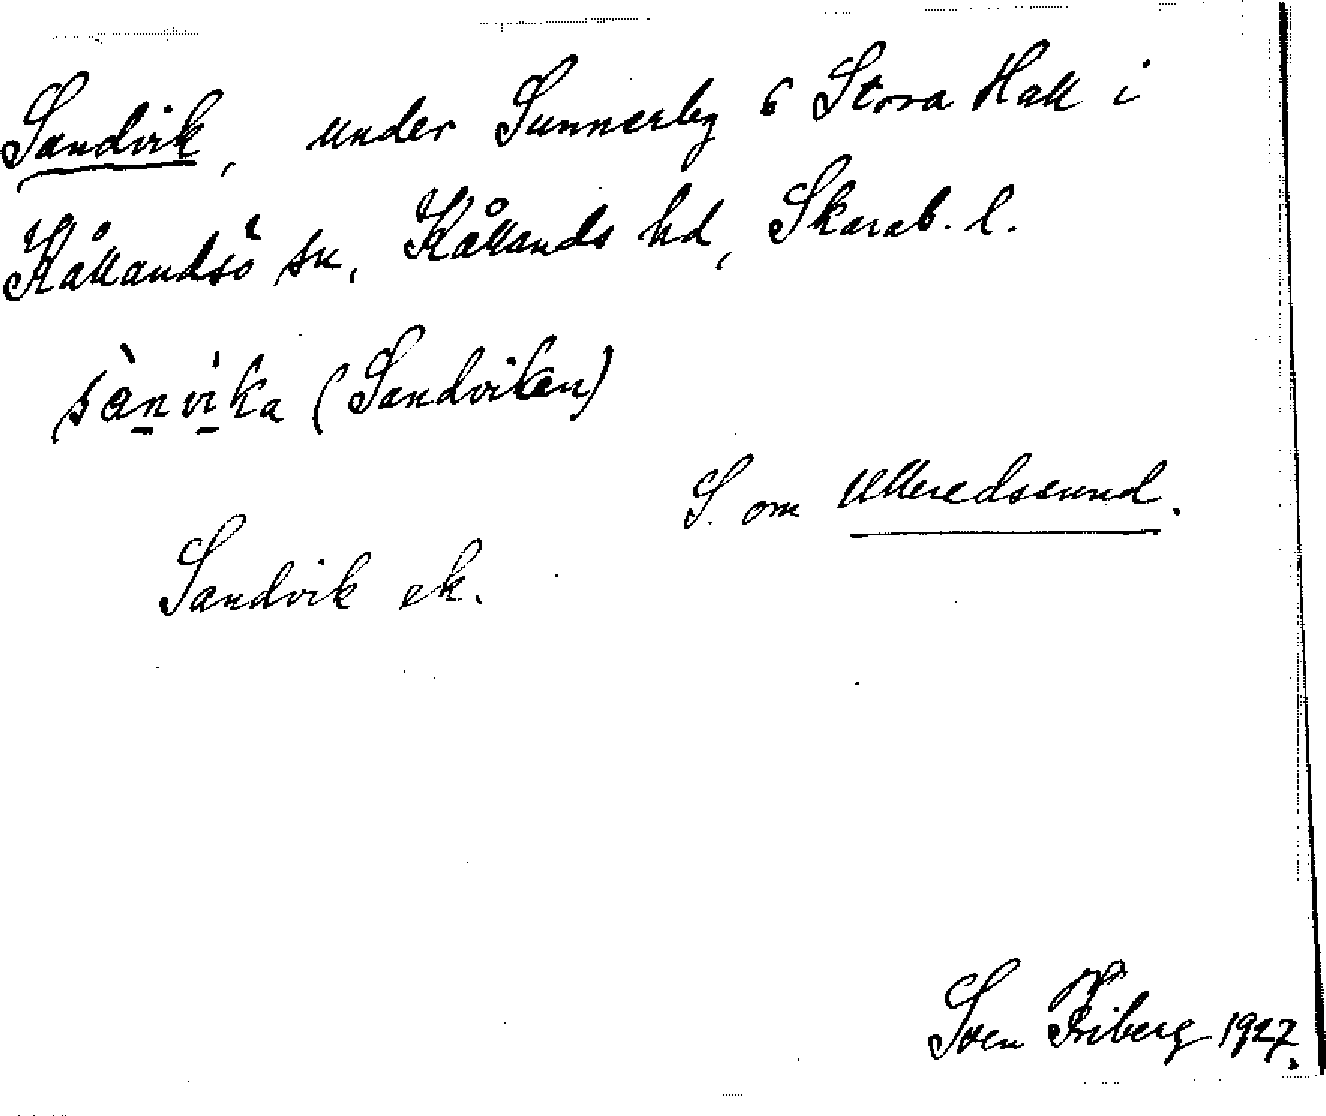 Sandvik, under Sunnerby 6 Stora Hall i
Kållandsö sn, Kållands hd, Skarab. l.
sànvika (Sandviken)
S. om Ulleredssund.
Sandvik ek.
Sven Friberg 1927.